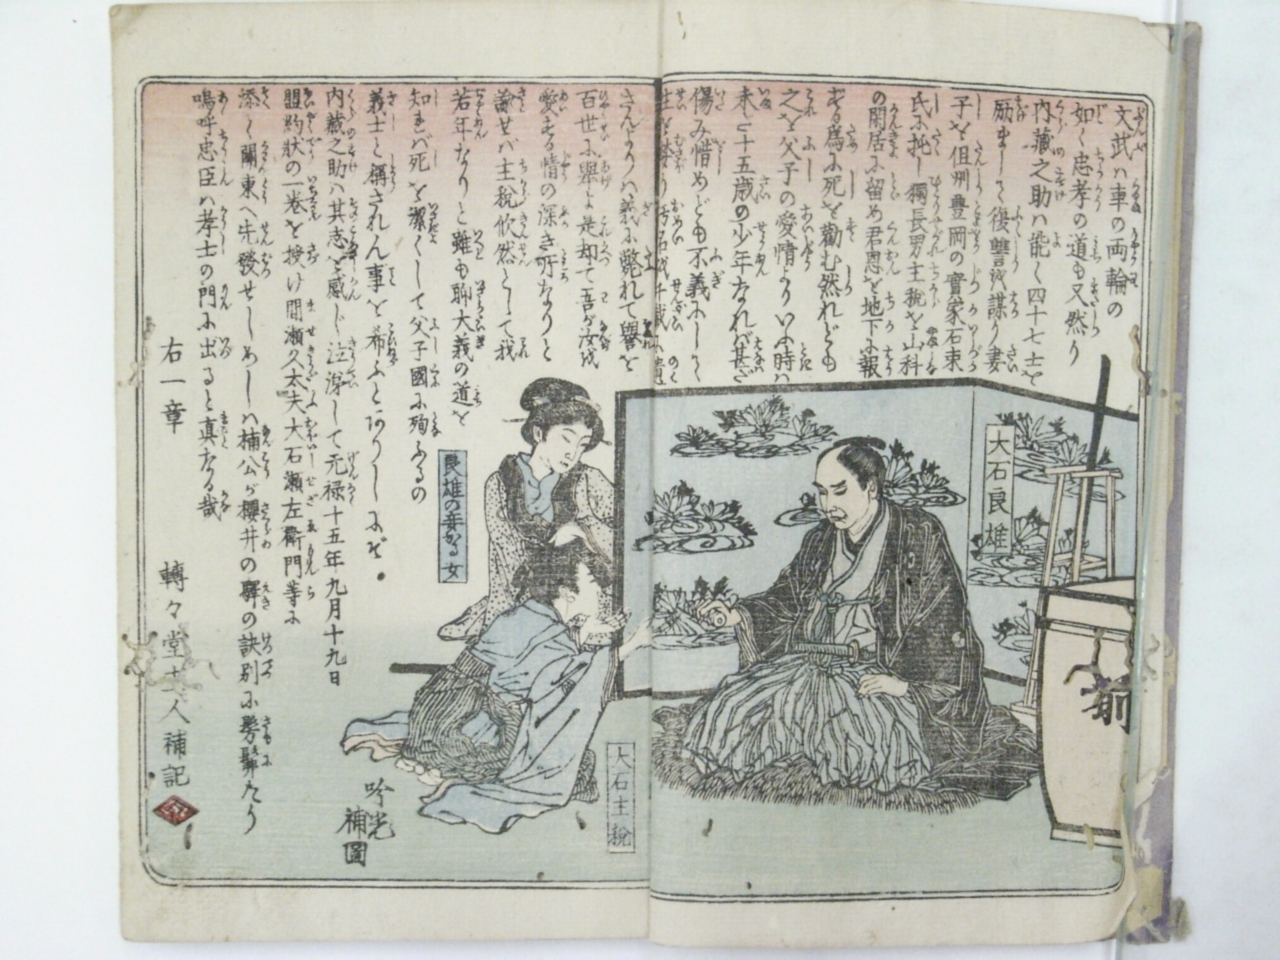 文武ハ車の両輪の
如く忠孝の道も又然り
内藏之助ハ能く四十七士を
励まして復讐を謀り妻
子を但州豊岡の實家石束
氏に托し獨長男主税を山科
の閑居に留め君恩を地下に報
ずる為に死を勸む然れども
之を父子の愛情よりいふ時ハ
未だ十五歳の少年なれバ甚だ
傷み惜めども不義にして
生を
さんよりハ義に斃れて譽を
百世に舉よ是却て吾が汝を
愛する情の深き所なりと
諭せバ主税欣然として我
若年なりと雖も聊大義の道を
知れバ死を潔くして父子國に殉ふるの
義士と稱されん事を希ふとありしにぞ
内藏之助ハ其志を感じ泣涕して元禄十五年九月十九日
盟約状の一巻を授け間瀬久太夫大石瀬左衛門等に
添て關東へ先發せしめしハ楠公が櫻井の驛の訣別に髣髴たり
嗚呼忠臣ハ孝士の門に出ると真なる哉
右一章
轉々堂主人補記
大石良雄
良雄の妾かる女
大石主税
吟光
補圖